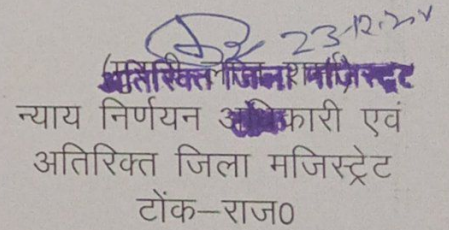 23-12-2024
अतिरिक्त जिला मजिस्ट्रेट
न्याय निर्णयन अधिकारी एवं
अतिरिक्त जिला मजिस्ट्रेट
टोंक–राज0